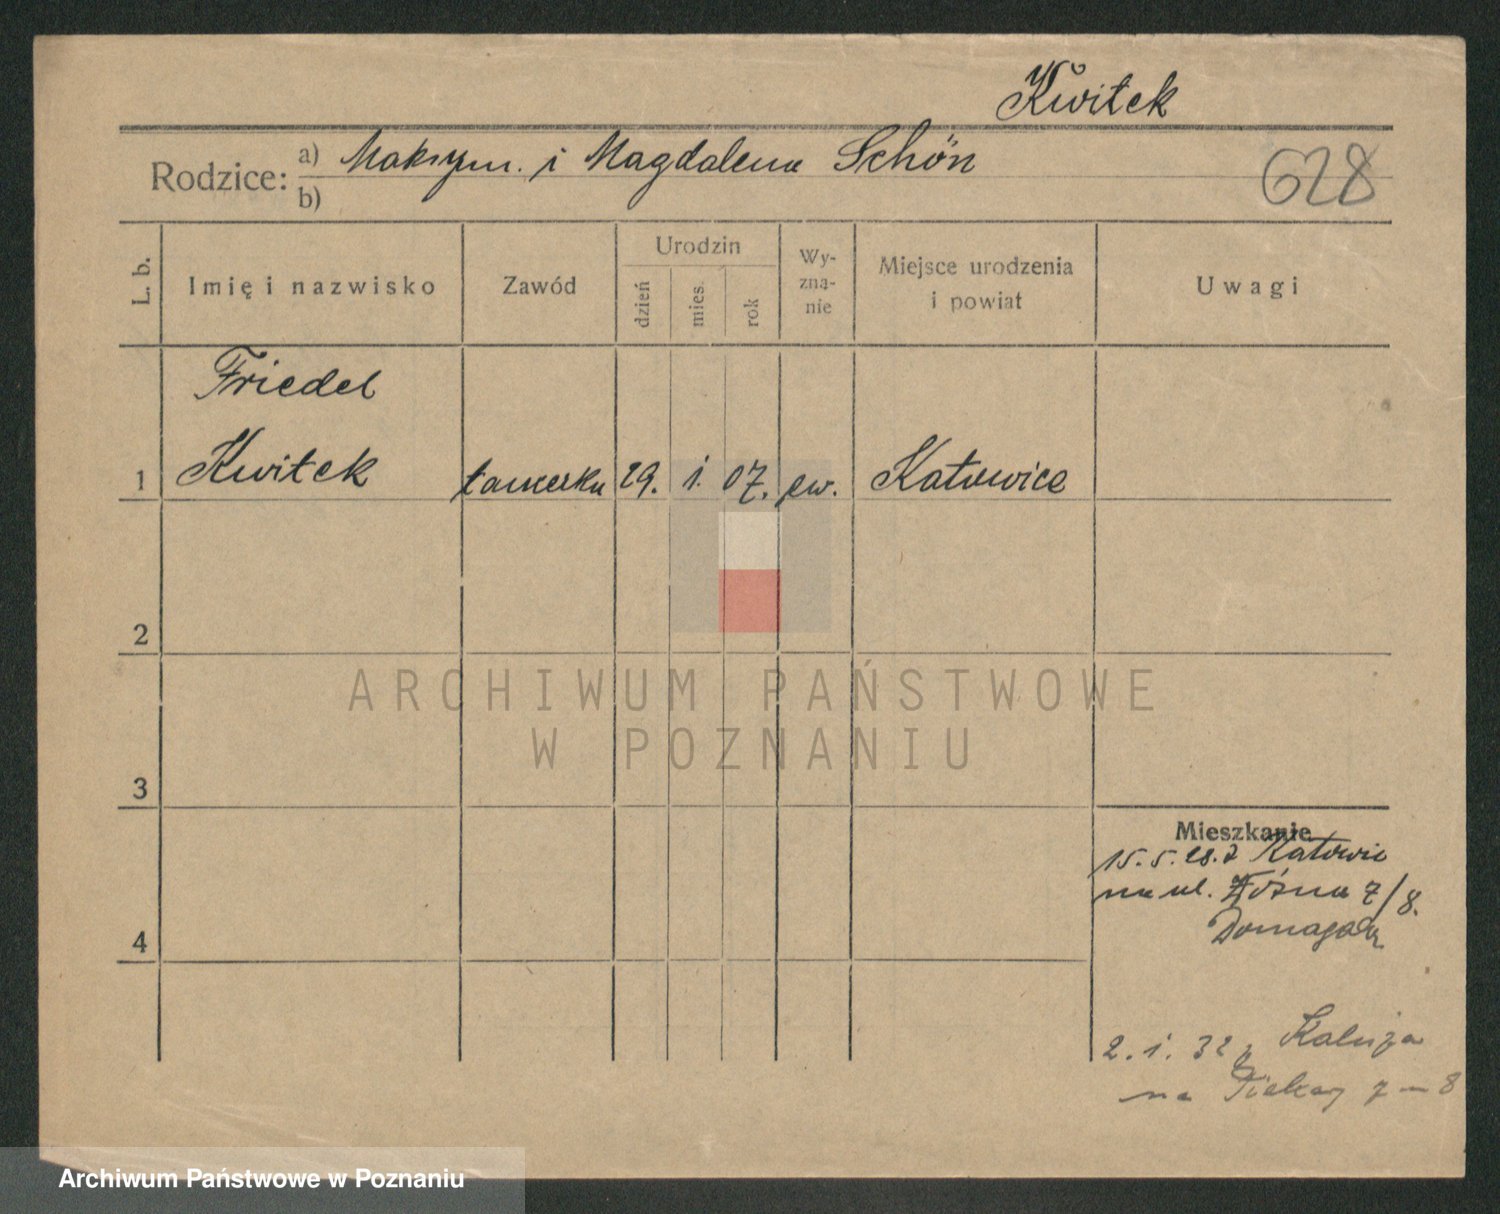 Kwitek
Rodzice: a) Maksym. i Magdalena Schön
b)
628
L. b.
Imię i nazwisko
Zawód
Urodzin
dzień
mies.
rok
Wy-
zna-
nie
Miejsce urodzenia
i powiat
Uwagi
Friedel
1 Kwitek tancerka 29. i. 07. ew. Katowice
2
ARCHIWUM PAŃSTWOWE
W POZNANIU
3
Mieszkanie
15. 5. 28. z Katowic
na ul. 7/8.
Domagała
4
2. i. 32 z
na Piekary 7 m 8
Archiwum Państwowe w Poznaniu